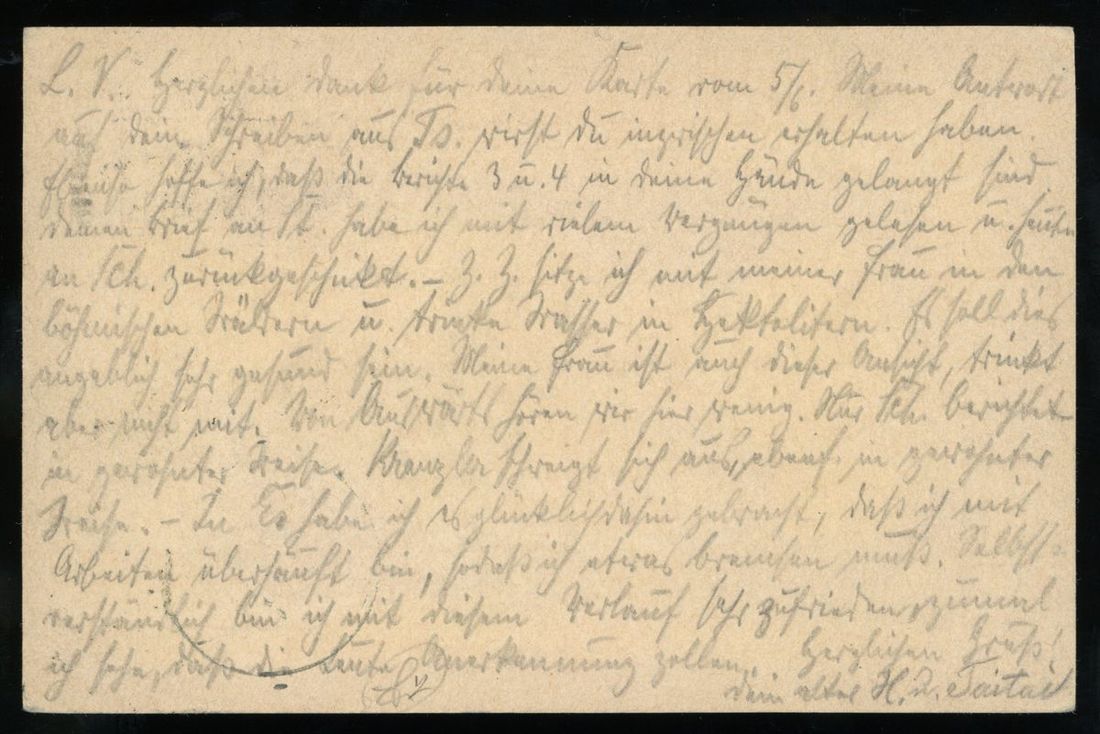 L. V. Herzlichen Dank für deine Karte vom 5/6. Meine Antwort
auf dein Schreiben aus Ts. wirst du inzwischen erhalten haben.
Ebenso hoffe ich, daß die Berichte 3 u. 4 in deine Hände gelangt sind.
Deinen Brief an St. habe ich mit vielem Vergnügen gelesen u. heute
an Sch. zurückgeschickt. – Z. Z. sitze ich mit meiner Frau in den
böhmischen Wäldern u. trinke Wasser in Hektolitern. Es soll dies
angeblich sehr gesund sein. Meine Frau ist auch dieser Ansicht, trinkt
aber nicht mit. Von Auswärts hören wir hier wenig. Nur Sch. berichtet
in gewohnter Weise. schweigt sich aus, ebenf. in gewohnter
Weise. – In Ts habe ich es glücklich dahin gebracht, daß ich mit
Arbeiten überhäuft bin, sodaß ich etwas bremsen muß. Selbst-
verständlich bin ich mit diesem Verlauf sehr zufrieden, zumal
ich sehe, daß die Leute Anerkennung zollen. Herzlichen Gruß!
Dein alter H. u.